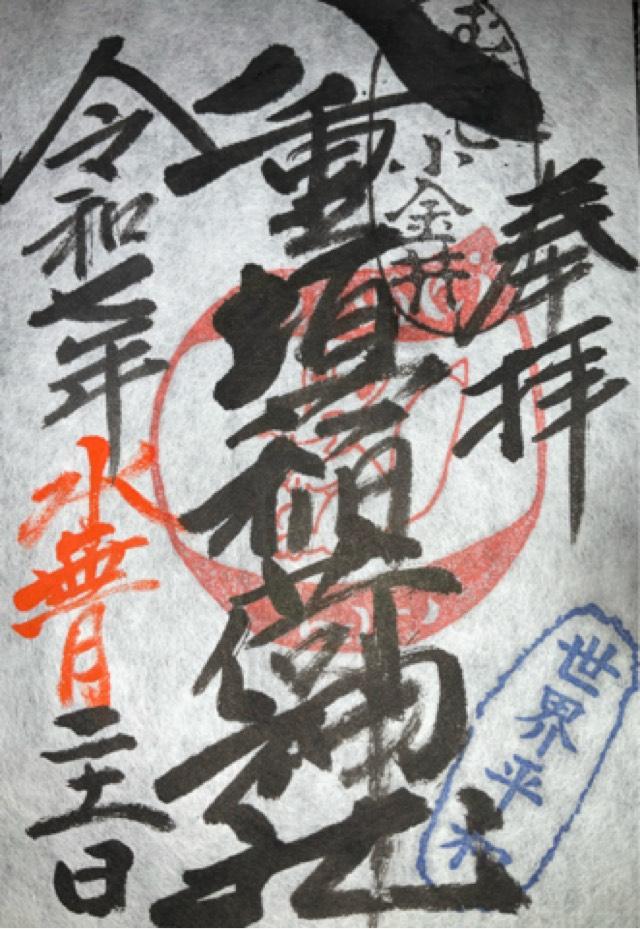 奉拝
八重垣稲荷神社
小金井
令和七年
水無月
二十一日
世界平和